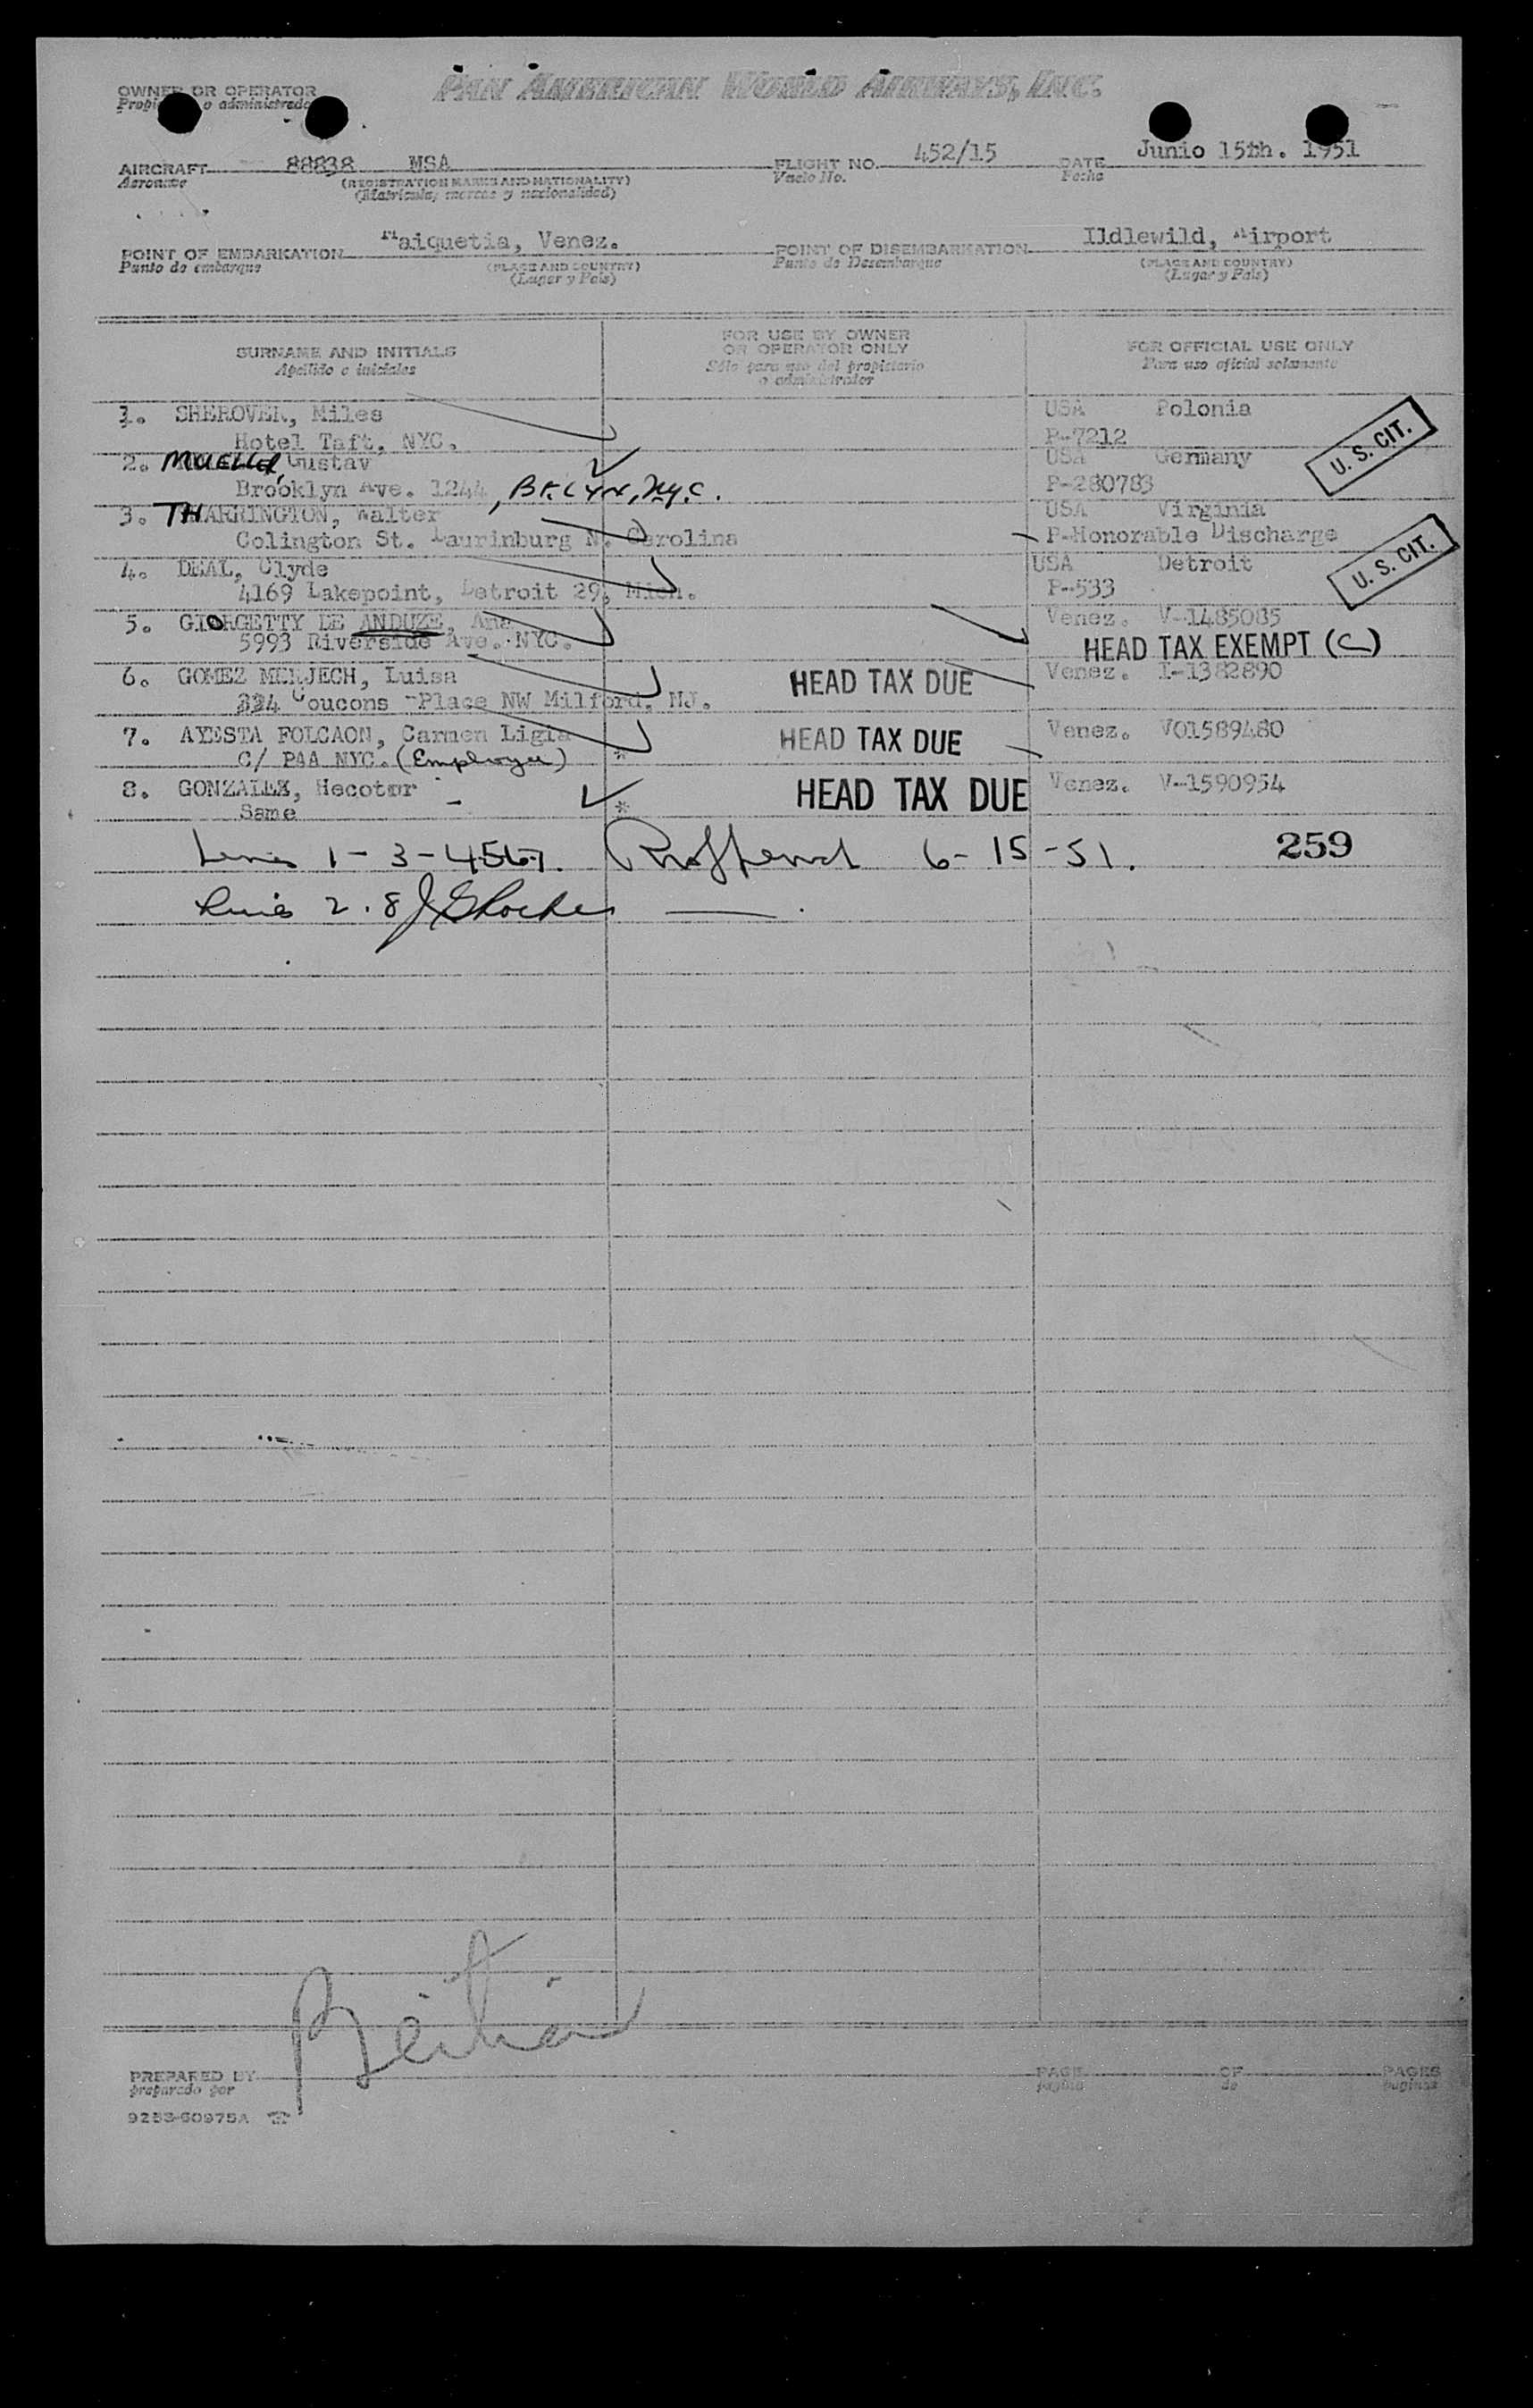 OWNER OR OPERATOR PAN AMERICAN WORLD AIRWAYS, INC.
o administrador
AIRCRAFT 88838 MSA FLIGHT NO. 452/15 DATE Junio 15th. 1951
Aeronave (REGISTRATION MARKS AND NATIONALITY) Vuelo No. Fecha
(Matricula, marcas y nacionalidad)
POINT OF EMBARKATION Maiquetia, Venez. POINT OF DISEMBARKATION Ildlewild, Airport
Punto de embarque (PLACE AND COUNTRY) Punto de Desembarque (PLACE AND COUNTRY)
(Lugar y Pais) (Lugar y Pais)
SURNAME AND INITIALS FOR USE BY OWNER OR OPERATOR ONLY FOR OFFICIAL USE ONLY
Apellido e iniciales Sólo para uso del propietario o administrator Para uso oficial solamente
1. SHEROVER, Miles USA Polonia
Hotel Taft, NYC. P-7212
2. MUELLER, Gustav USA Germany U. S. CIT.
Brooklyn Ave. 1244, BKLYN, N.Y.C. P-280783
3. THARRINGTON, Walter USA Virginia
Colington St. Laurinburg N. Carolina P-Honorable Discharge
4. DEAL, Clyde USA Detroit U. S. CIT.
4169 Lakepoint, Detroit 29, Mich. P-533
5. GIORGETTY DE ANDUZE, Ana Venez. V-1485085
5993 Riverside Ave. NYC. HEAD TAX EXEMPT (C)
6. GOMEZ MERJECH, Luisa HEAD TAX DUE Venez. I-1382890
Place NW Milford. NJ.
7. AYESTA FOLCAON, Carmen Ligia HEAD TAX DUE Venez. V01589480
C/ PAA NYC. (Employee) *
8. GONZALEX, Hecotor HEAD TAX DUE Venez. V-1590954
Same *
1-3-4567. 6-15-51. 259
2.8
PREPARED BY PAGE OF PAGES
preparado por pagina de paginas
9253-60975A